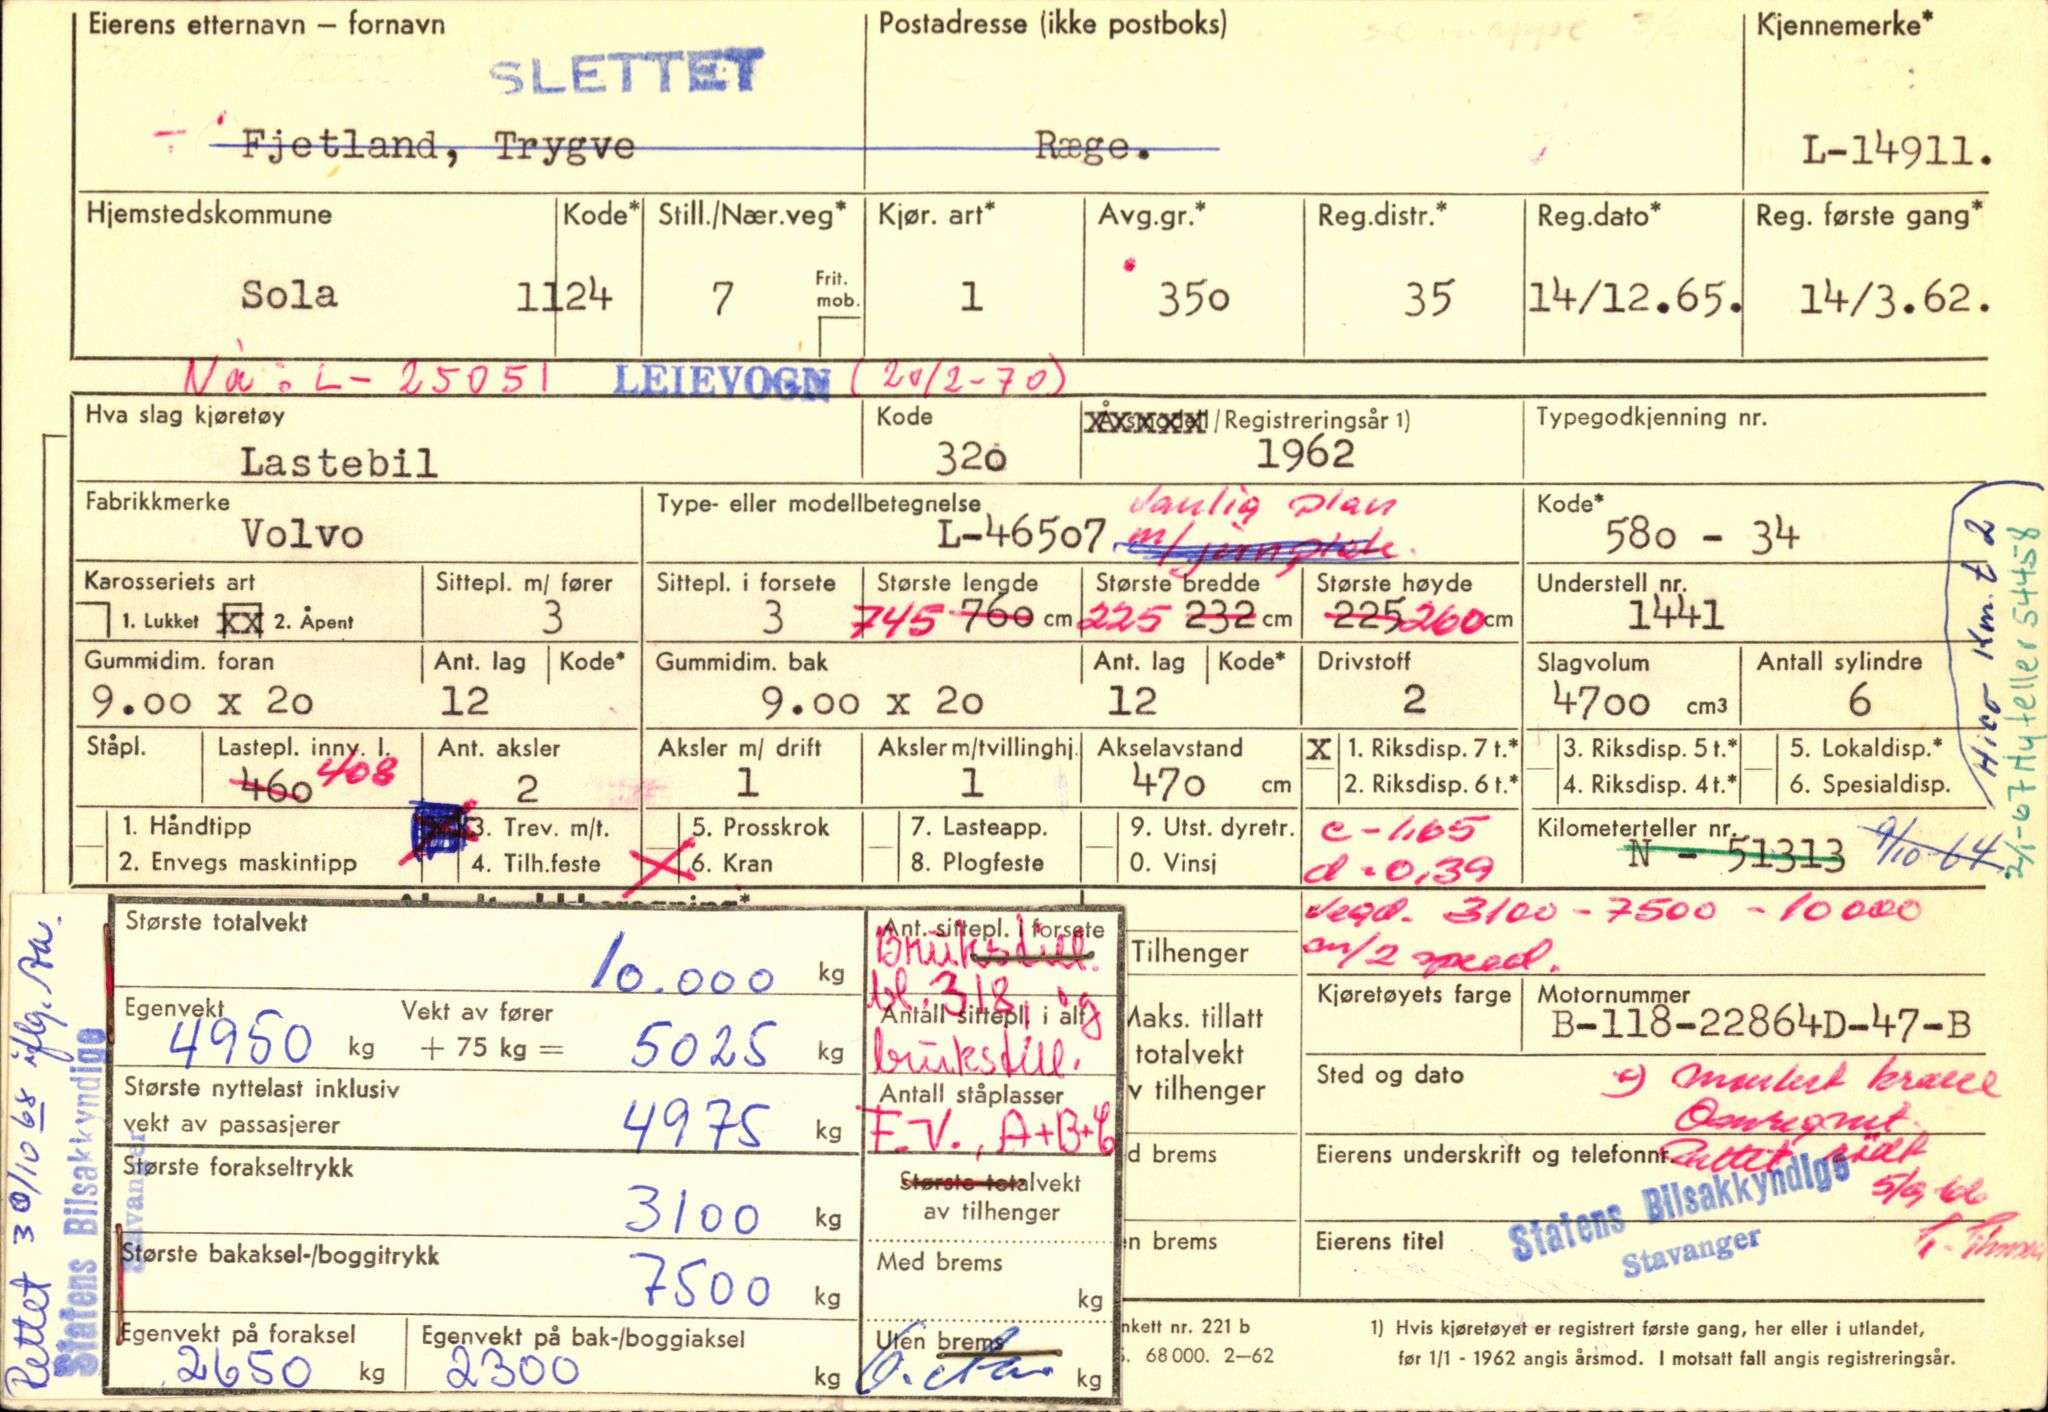 Eierens etternavn – fornavn
Postadresse (ikke postboks)
se mappe
Kjennemerke*
SLETTET
Fjetland, Trygve
Ræge.
L-14911.
Hjemstedskommune
Kode*
Still./Nær.veg*
Kjør. art*
Avg.gr.*
Reg.distr.*
Reg.dato*
Reg. første gang*
Sola
1124
7
Frit. mob.
1
350
35
14/12.65.
14/3.62.
Nå: L- 25051
LEIEVOGN
(20/2-70)
Hva slag kjøretøy
Kode
Årsmodell/Registreringsår 1)
Typegodkjenning nr.
Lastebil
320
1962
Fabrikkmerke
Type- eller modellbetegnelse
Kode*
Volvo
L-46507
Vanlig plan
m/
580 - 34
Karosseriets art
Sittepl. m/ fører
Sittepl. i forsete
Største lengde
Største bredde
Største høyde
Understell nr.
1. Lukket
XX 2. Åpent
3
3
745 760 cm
225 232 cm
225 260 cm
1441
Gummidim. foran
Ant. lag
Kode*
Gummidim. bak
Ant. lag
Kode*
Drivstoff
Slagvolum
Antall sylindre
9.00 x 20
12
9.00 x 20
12
2
4700 cm3
6
Ståpl.
Lastepl. innv. l.
Ant. aksler
Aksler m/ drift
Aksler m/tvillinghj.
Akselavstand
X 1. Riksdisp. 7 t.*
3. Riksdisp. 5 t.*
5. Lokaldisp.*
460 408
2
1
1
470 cm
2. Riksdisp. 6 t.*
4. Riksdisp. 4 t.*
6. Spesialdisp.
1. Håndtipp
3. Trev. m/t.
5. Prosskrok
7. Lasteapp.
9. Utst. dyretr.
c - 1,65
Kilometerteller nr.
2. Envegs maskintipp
4. Tilh.feste
6. Kran
8. Plogfeste
0. Vinsj
d = 0,39
N - 51313
9/10-64
Hico Km.t 2
2/1-67 Ny teller 54458
Største totalvekt
10.000 kg
Ant. sittepl. i forsete
Brukstill.
bl. 318, og
Tilhenger
Vegd. 3100 - 7500 - 10000
m/2 speed.
Egenvekt
4950 kg
Vekt av fører
+ 75 kg =
5025 kg
Antall sittepl. i alt
brukstill.
Maks. tillatt
totalvekt
v tilhenger
Kjøretøyets farge
Motornummer
B-118-22864D-47-B
Største nyttelast inklusiv
vekt av passasjerer
4975 kg
Antall ståplasser
F.V., A+B+C
Sted og dato
Største forakseltrykk
3100 kg
Største totalvekt
av tilhenger
d brems
Eierens underskrift og telefonnr.
Rettet rödt
5/9-66
Statens Bilsakkyndige
Stavanger
Største bakaksel-/boggitrykk
7500 kg
Med brems
kg
n brems
Eierens titel
Egenvekt på foraksel
2650 kg
Egenvekt på bak-/boggiaksel
2300 kg
Uten brems
kg
nkett nr. 221 b
68 000. 2–62
1) Hvis kjøretøyet er registrert første gang, her eller i utlandet,
før 1/1 - 1962 angis årsmod. I motsatt fall angis registreringsår.
Rettet 30/10 68 iflg.
Statens Bilsakkyndige
Stavanger